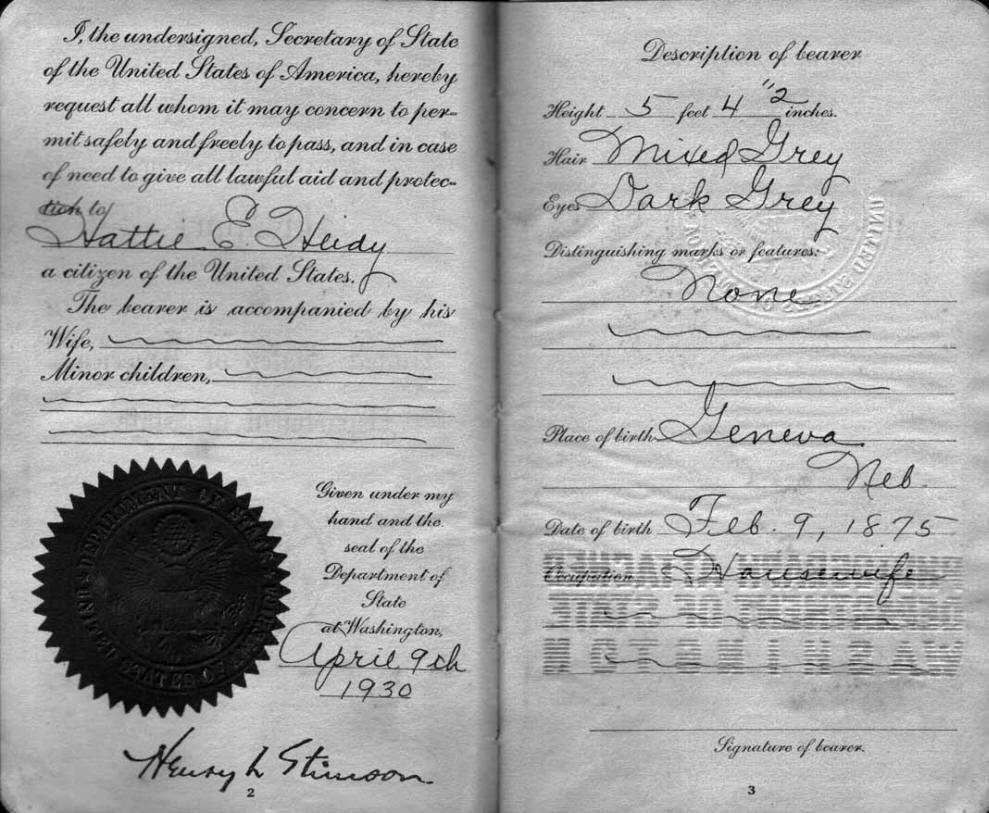 I, the undersigned, Secretary of State
of the United States of America, hereby
request all whom it may concern to per-
mit safely and freely to pass, and in case
of need to give all lawful aid and protec-
tion to
Hattie E. Heidy
a citizen of the United States.
The bearer is accompanied by his
Wife,
Minor children,
Given under my
hand and the
seal of the
Department of
State
at Washington,
April 9th
1930
Henry L Stimson.
2
Description of bearer
Height 5 feet 4 "2 inches.
Hair Mixed Grey
Eyes Dark Grey
Distinguishing marks or features:
None
Place of birth Geneva
Neb.
Date of birth Feb. 9, 1875
Occupation Housewife
Signature of bearer.
3